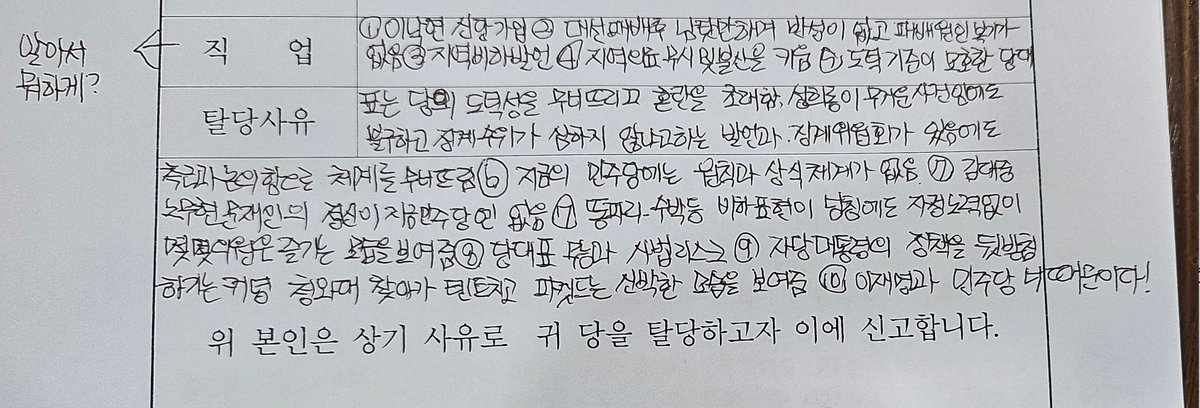 알아서
뭐하게?
직 업
①이낙연 신당가입 ② 대선패배후 남탓만하며 반성이 없고 패배원인 분석이
없음 ③ 지역비하발언 ④ 지역인 무시 및 불신을 키움 ⑤ 도덕기준이 모호한 당대
탈당사유
표는 당의 도덕성을 무너뜨리고 혼란을 초래함. 성희롱이 무거운 사건임에도
불구하고 징계수위가 심하지 않냐고하는 발언과. 징계위원회가 있음에도
측근과 논의함으로 체계를 무너뜨림 ⑥ 지금의 민주당에는 원칙과 상식 체계가 없음. ⑦ 김대중
노무현 문재인의 정신이 지금 민주당인 없음 ⑦ 똥파리·수박등 비하표현이 난칭에도 자정노력없이
몇몇의원은 즐기는 모습을 보여줌 ⑧ 당대표 사법리스크 ⑨ 자당대통령의 정책을 뒷받침
하기는 커녕 청와대 찾아가 텐트치고 파킷드는 신박한 모습을 보여줌 ⑩ 이재명과 민주당 너 때문이다!
위 본인은 상기 사유로 귀 당을 탈당하고자 이에 신고합니다.